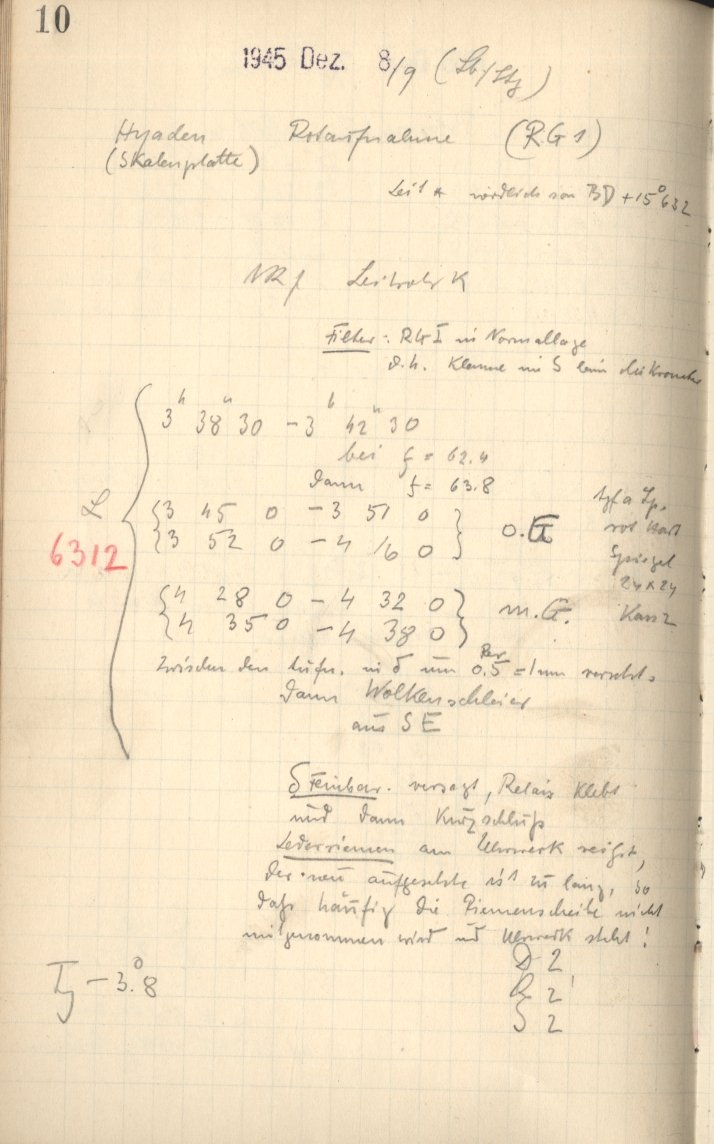 10
1945 Dez. 8/9
Hyaden Rotaufnahme (RG1)
(Skalenplatte)
Leit * nördlich von BD +15° 632
Leitrohr K
Filter: RG I in Normallage
d.h. Klemme im S beim
3h 38m 30 - 3h 42m 30
bei f = 62.4
dann f = 63.8
{3 45 0 - 3 51 0} o.G
{3 52 0 - 4 16 0}
Agfa Sp.
rot Hart
Spiegel
24 x 24
L
6312
{4 28 0 - 4 32 0} m.G.
{4 35 0 - 4 38 0}
zwischen den Aufn. in δ um 0.5 = 1mm versetzt.
dann Wolkenschleier
aus SE
δ Feinbew. versagt, Relais klebt
und dann Kurzschluß
Lederriemen am Uhrwerk reißt,
der neu aufgesetzte ist zu lang, so
daß häufig die Riemenscheibe nicht
mitgenommen wird und Uhrwerk steht!
D 2
R 2
S 2
- 3.°8